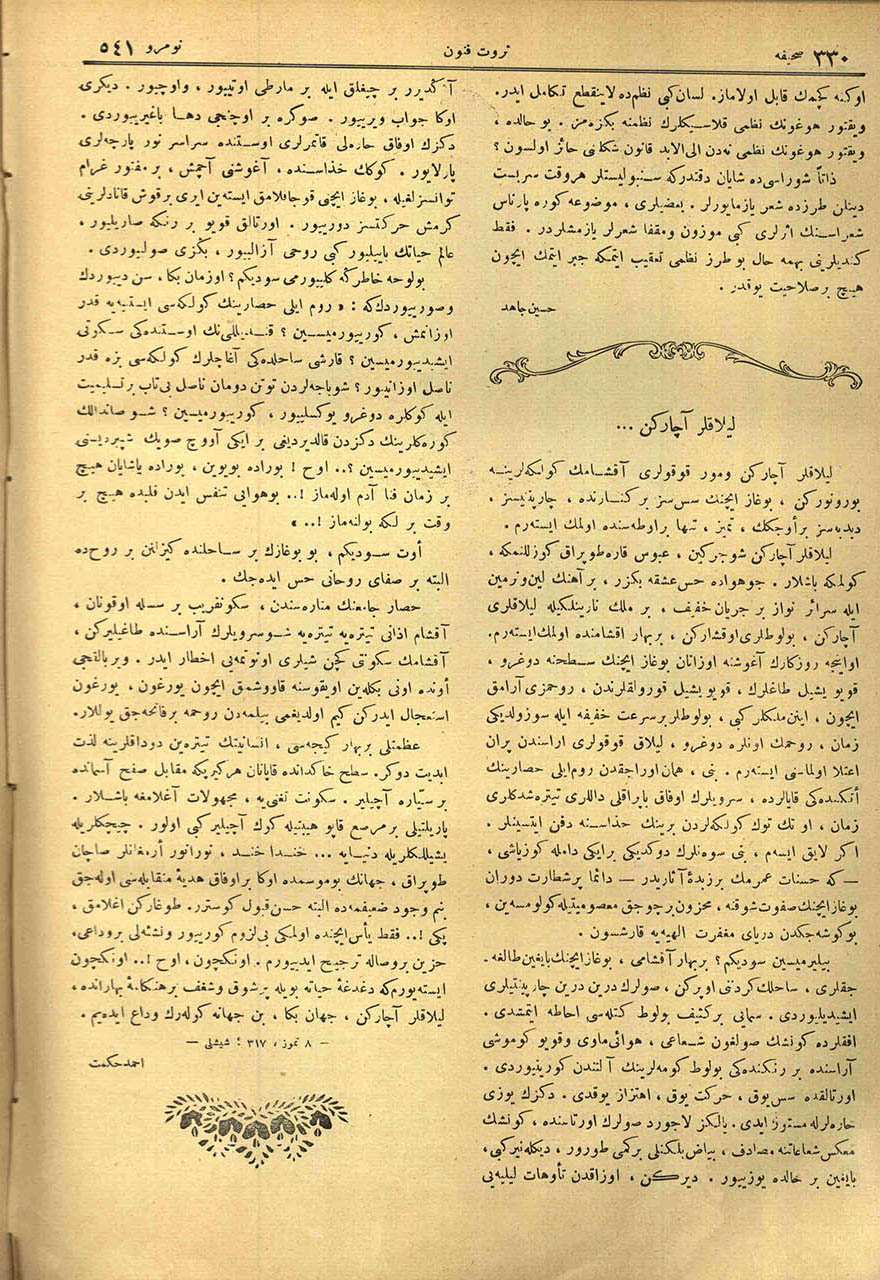 صحیفه ٣٣٠
ثروت فنون
نومرو ٥٤١
اوكنه كچمك قابل اولاماز. لسان كبی نظم‌ده لاینقطع تكامل ایدر.
ویقتور هوغونك نظمی قلاسیكلرك نظمنه بكزه‌مز. بو حالده،
ویقتور هوغونك نظمی نه‌دن الی‌الابد قانون شكلنی حائز اولسون؟
ذاتاً شوراسی‌ده شایان دقتدركه سنبولیستلر هروقت سربست
دینلن طرزده شعر یازمایورلر. بعضیلری، موضوعه كوره پارناس
شعراسنك اثرلری كبی موزون ومقفا شعرلر یازمشلردر. فقط
كندیلرینی بهمه حال بو طرز نظمی تعقیب ایتمكه جبر ایتمك ایچون
هیچ بر صلاحیت یوقدر.
حسین جاهد
لیلاقلر آچاركن ...
لیلاقلر آچاركن ومور قوقولری آقشامك كولكه‌لرینه
بورونوركن، بوغاز ایچنك سس‌سز بر كنارنده، چارپنیسز،
دبدبه‌سز بر أوجكك، تمیز، تنها بر اوطه‌سنده اولمك ایسته‌رم.
لیلاقلر آچاركن شوجركین، عبوس قاره‌طوپراق كوزللنمكه،
كولمكه باشلار. جوهواده حس عشقه بكزر، بر آهنك لین ونرمین
ایله سرائر نواز بر جریان خفیف، بر ملك نازینلكیله لیلاقلری
آچاركن، بولوطلری اوقشاركن، بر بهار اقشامنده اولمك ایسته‌رم.
اواینجه روزكارك آغوشنه اوزانان بوغاز ایچنك سطحنه دوغرو،
قویو یشیل طاغلرك، قویو یشیل قورولقلرندن، روحمزی آرامق
ایچون، اینن ملكلر كبی، بولوطلر بر سرعت خفیفه ایله سوزولدیكی
زمان، روحمك اونلره دوغرو، لیلاق قوقولری اراسندن پران
اعتلا اولماسنی ایسته‌رم. بنی، همان اوراجقدن روم‌ایلی حصارینك
أتكنده‌كی قایالرده، سرویلرك اوفاق یاپراقلی داللری تیتره‌شدكلری
زمان، او تك توك كولكه‌لردن برینك حذاسنه دفن ایتسینلر.
اكر لایق ایسه‌م، بنی سوه‌نلرك دوكدیكی بر ایكی دامله كوزیاشی،
— كه حسنات عمرمك بر زبدهٔ آثاریدر — دائما پر شطارت دوران
بوغاز ایچنك صفوت شوقنه، محزون بر چوجق معصومیتیله كولومسه‌ین،
بو كوشه‌جكدن دریای مغفرت الهیه‌یه قارشسون.
بیلیرمیسین سودیكم؟ بر بهار آقشامی، بوغاز ایچنك بایغین طالغه‌-
جقلری، ساحلك كردننی اوپركن، صولرك درین درین چارپنتیلری
ایشیدیلیوردی. سمایی بر كثیف بولوط كتله‌سی احاطه ایتمشدی.
افقلرده كونشك صولغون شعاعی، هوائی ماوی وقویو كوموشی
آراسنده بر رنكنده‌كی بولوط كومه‌لرینك آلتندن كورینیوردی.
اورتالقده سس یوق، حركت یوق، اهتزاز یوقدی. دكزك یوزی
حاره‌لرله مستور ایدی. یالكز لاجورد صولرك اورتاسنده، كونشك
معكس شعاعاتنه مصادف، بیاض یلكنلی بركمی طورور، دیكله‌نیر كبی،
بایغین بر حالده یوزییور. دیركن، اوزاقدن تأوهات لیلیه‌یی
آكدیرر بر چیغلق ایله بر مارطی اوتییور، واوچیور. دیكری
اوكا جواب ویرییور. صوكره بر اوچنجی دها باغیرییوردی.
دكزك اوفاق حاره‌لی قاتمرلری اوستنده سراسر نور پارچه‌لری
پارلایور. كوكك حذاسنده، آغوشنی آچمش، بر مفتور غرام
توانسزلغیله، بوغاز ایچنی قوجاقلامق ایسته‌ین ایری بر قوش قانادلرینی
كرمش حركتسز دورییور. اورتالق قویو بر رنكه صاریلیور،
عالم حیاتك باییلیور كبی روحی آزالییور، بكزی صولییوردی.
بولوحه خاطركه كلییورمی سودیكم؟ اوزمان بكا، سن دییوردك
وصورییوردك‌كه: « روم ایلی حصارینك كولكه‌سی ایستینه‌یه قدر
اوزانمش، كورییورمیسین؟ قندیللی‌نك اوستنده‌كی سكوتی
ایشیدییورمیسین؟ قارشی ساحلده‌كی آغاچلرك كولكه‌سی بزه قدر
ناصل اوزانیور؟ شوباجه‌لردن توتن دومان ناصل بی‌تاب بر تسلیمیت
ایله كوكلره دوغرو یوكسلییور، كورییورمیسین؟ شو صانداللك
كوره‌كلرینك دكزدن قالدیردیغی بر ایكی آووج صویك شیپردیسنی
ایشیدییورمیسین؟.. اوح! بوراده بویوین، بوراده یاشایان هیچ
بر زمان فنا آدم اوله‌ماز!.. بوهوایی تنفس ایدن قلبده هیچ بر
وقت بر لكه بولنه‌ماز!.. »
أوت سودیكم، بو بوغازك بر ساحلنده كیزلنن بر روح‌ده
البته بر صفای روحانی حس ایده‌جك.
حصار جامعنك مناره‌سندن، سكونقریب بر سسله اوقونان،
آقشام اذانی تیتره‌یه تیتره‌یه شو سرویلرك آراسنده طاغیلیركن،
آقشامك سكوتی كچن شیلری اونوتمه‌یی اخطار ایدر. و بر بالقجی
أونده اونی بكله‌ین اویقوسنه قاووشمق ایچون یورغون، یورغون
استعجال ایدركن كیم اولدیغمی بیلمه‌دن روحمه بر فاتحه‌جق یوللار.
عظمتلی بر بهار كیجه‌سی، انسانیتك تیتره‌ین دوداقلرینه لذت
ابدیت دوكر. سطح خاكدانده قاپانان هر كیریكه مقابل صفح آسمانده
بر سیاره آچیلیر. سكونت نغنی‌یه، مجهولات آغلامغه باشلار.
پاریلتیلی بر مرصع قاپو هیبتیله كوك آچیلیر كبی اولور. چیچكلریله
یشیللكلریله دنیایه ... خندا خند، نورانور أرمغانلر صاچان
طوپراق، جهانك بوموسمده اوكا بر اوفاق هدیهٔ متقابله‌سی اوله‌جق
بنم وجود ضعیفمه‌ده البته حسن قبول كوسترر. طوغاركن اغلامق،
پكی!.. فقط یأس ایچنده اولمكی بی‌لزوم كورییور ونشئه‌لی بروداعی،
حزین بروصاله ترجیح ایدییورم. اونكچون، اوح!.. اونكچون
ایسته‌یورم‌كه دغدغهٔ حیاته بویله پرشوق وشغف برهنكامهٔ بهارانده،
لیلاقلر آچاركن، جهان بكا، بن جهانه كوله‌رك وداع ایده‌یم.
— ٨ تموز، ٣١٧؛ شیشلی —
احمد حكمت